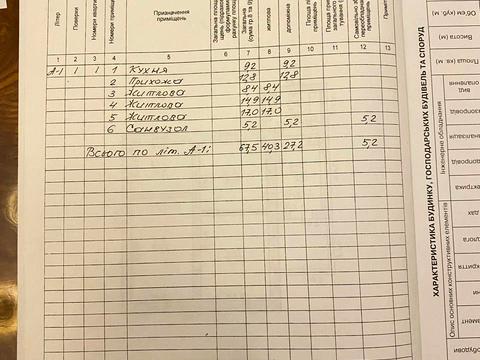 Літер
Поверхи
Номери кварти
Номери приміщ
Призначення приміщень
Загальна площ
Загальна
житлова
допоміжна
Площа л
приміщень
Приміт
1 2 3 4 5 6 7 8 9 10 11 12 13
А-1 1 1 1 Кухня 9,2 9,2
2 Прихожа 12,8 12,8
3 Житлова 8,4 8,4
4 Житлова 14,9 14,9
5 Житлова 17,0 17,0
6 Санвузол 5,2 5,2 5,2
Всього по літ. А-1: 67,5 40,3 27,2 5,2
ХАРАКТЕРИСТИКА БУДИНКУ, ГОСПОДАРСЬКИХ БУДІВЕЛЬ ТА СПОРУД
Об'єм (куб. м)
Висота (м)
Площа (кв. м)
вид опалення
Інженерне обладнання
Опис основних конструктивних елементів